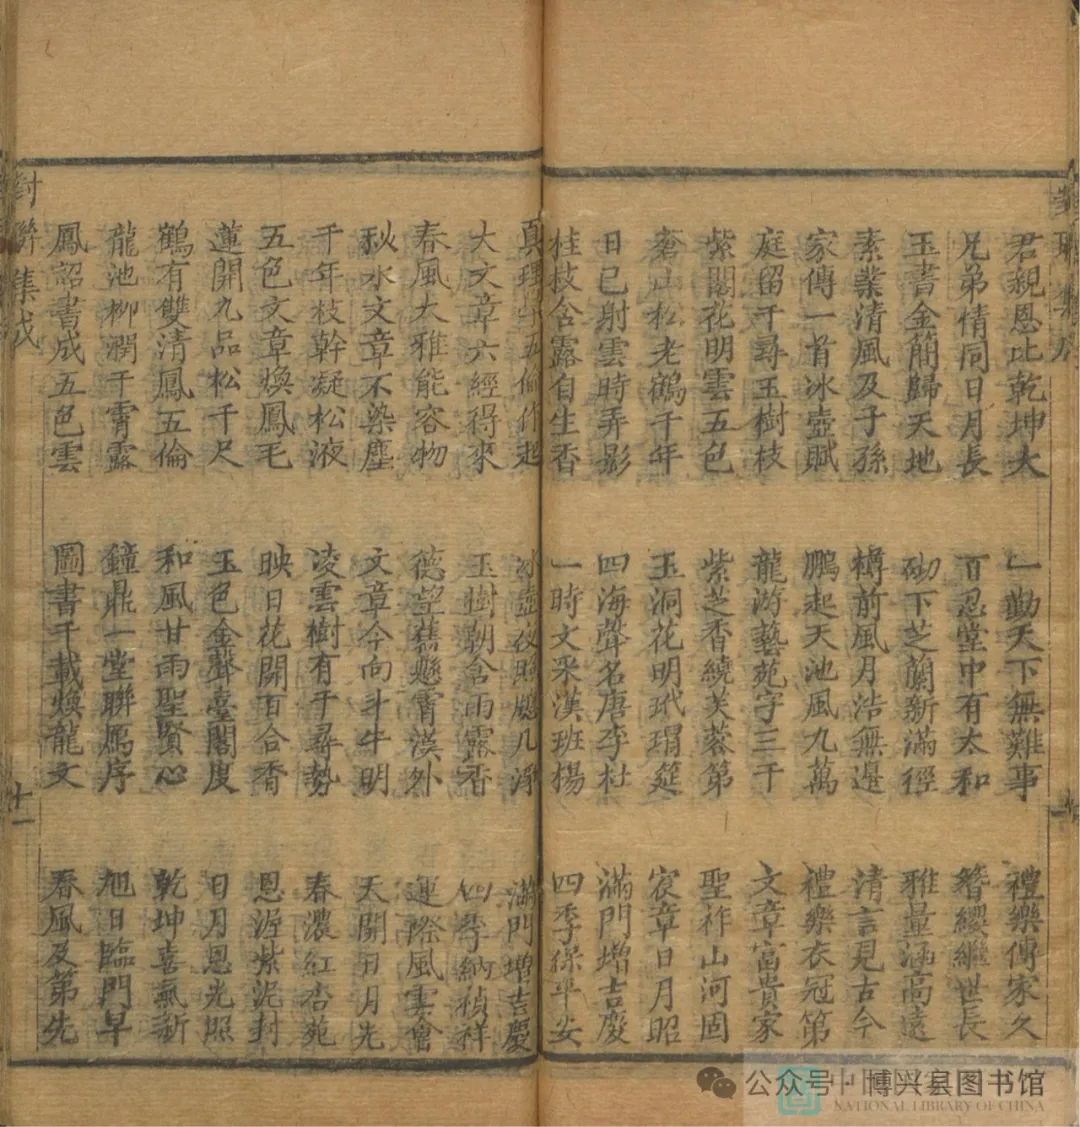 君親恩比乾坤大
兄弟情同日月長
玉書金簡歸天地
素業清風及子孫
家傳一首冰壺賦
庭留千尋玉樹枝
紫閣花明雲五色
蒼山松老鶴千年
日已射雲時弄影
桂枝含露自生香
一勤天下無難事
百忍堂中有太和
砌下芝蘭新滿徑
樽前風月浩無邊
鵬起天池風九萬
龍游藝苑字三千
紫芝香繞芙蓉第
玉洞花明玳瑁筵
四海聲名唐李杜
一時文采漢班楊
禮樂傳家久
簪纓繼世長
雅量涵高遠
清言見古今
禮樂衣冠第
文章富貴家
聖祚山河固
宸章日月昭
滿門增吉慶
四季保平安
真理五倫作起
大文章六經得來
春風大雅能容物
秋水文章不染塵
千年枝幹凝松液
五色文章煥鳳毛
蓮開九品松千尺
鶴有雙清鳳五倫
龍池柳潤千霄露
鳳詔書成五色雲
冰壺夜映牕几淨
玉樹朝含雨露香
德望舊懸霄漢外
文章今向斗牛明
凌雲樹有千尋勢
映日花開百合香
玉色金聲臺閣度
和風甘雨聖賢心
鐘鼎一堂聯鴈序
圖書千載煥龍文
滿門增吉慶
四季納禎祥
運際風雲會
天開日月先
春濃紅杏苑
恩渥紫泥封
日月恩光照
乾坤喜氣新
旭日臨門早
春風及第先
對聯集成
十一
公众号·博兴县图书馆
NATIONAL LIBRARY OF CHINA